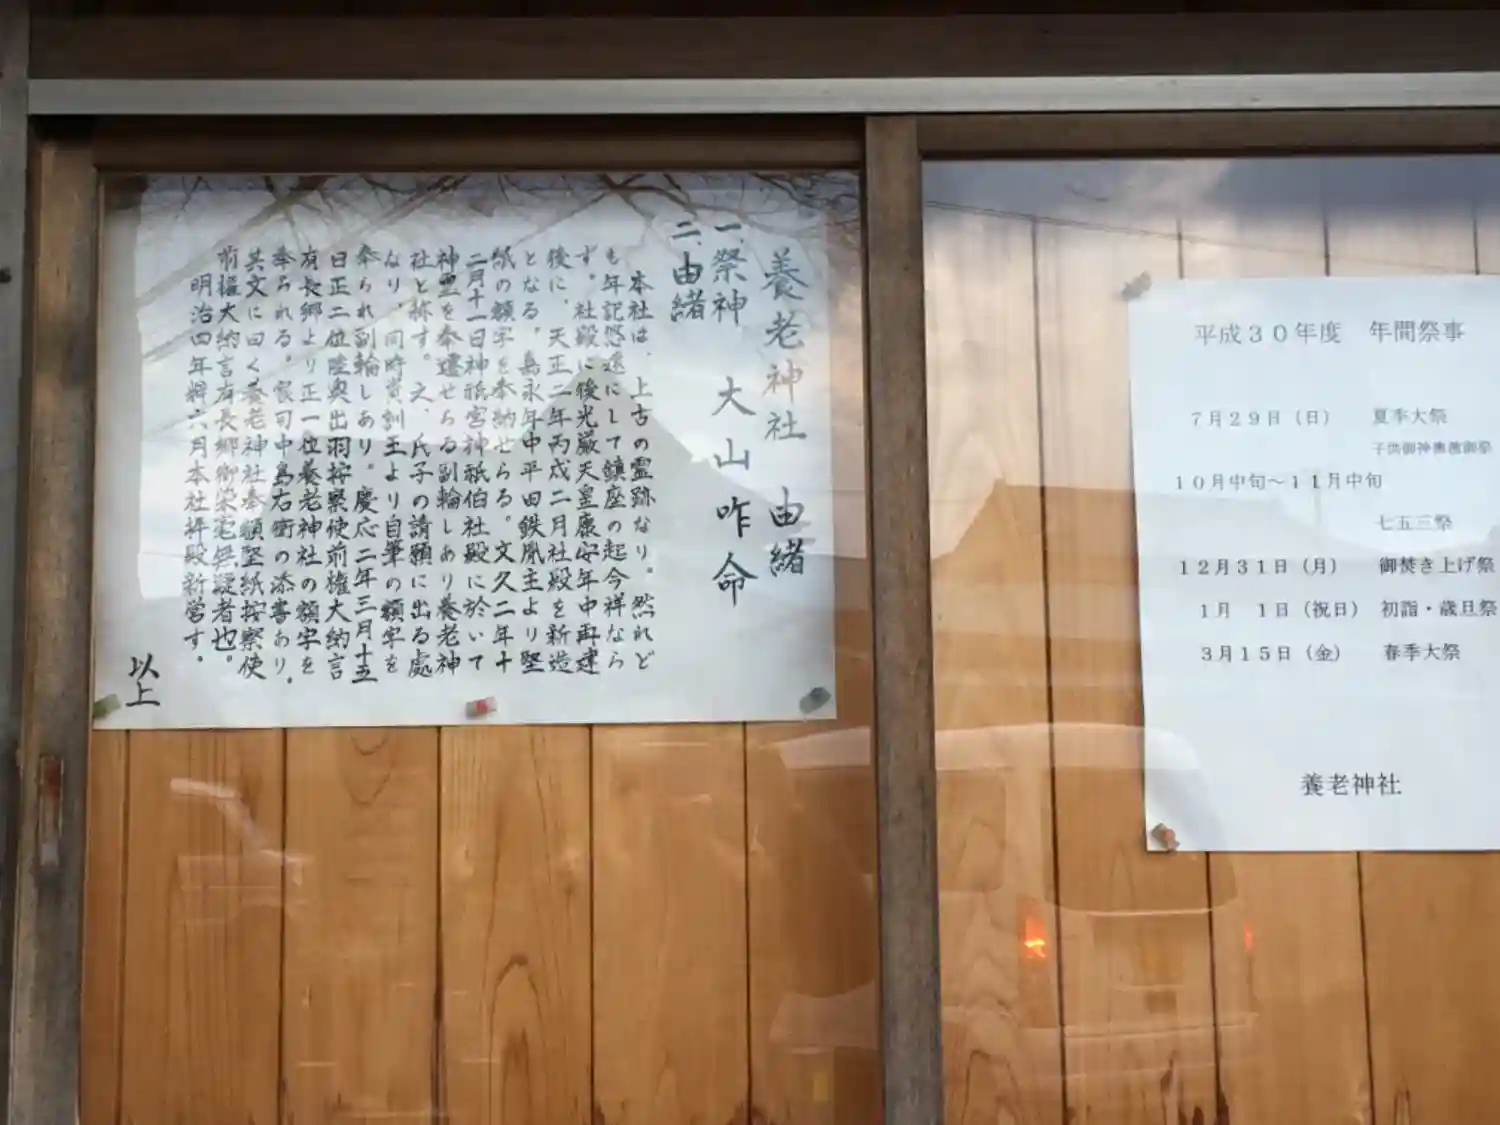 養老神社 由緒
一、祭神 大山咋命
二、由緒
本社は、上古の霊跡なり。然れど
も年記悠遠にして鎮座の起今祥なら
ず。社殿に後光厳天皇康安年中再建
後に、天正二年丙戌二月社殿を新造
となる。嘉永年中平田鉄胤主より堅
紙の額字を奉納せらる。文久二年十
二月十一日神祇宮神祇伯社殿に於いて
神霊を奉遷せらる副輪しあり養老神
社と称す。之、氏子の請願に出る處
なり、同時資訓王より自筆の額字を
奉られ副輪しあり。慶応二年三月十五
日正二位陸奥出羽按察使前権大納言
有長郷より正一位養老神社の額字を
奉られる。家司中島右衛の添書あり.
其文に曰く養老神社奉額堅紙按察使
前権大納言有長郷御染宅無疑者也。
明治四年 六月本社拝殿新営す。
以上
平成30年度 年間祭事
7月29日(日) 夏季大祭
子供御神輿渡御祭
10月中旬~11月中旬
七五三祭
12月31日(月) 御焚き上げ祭
1月 1日(祝日) 初詣・歳旦祭
3月15日(金) 春季大祭
養老神社